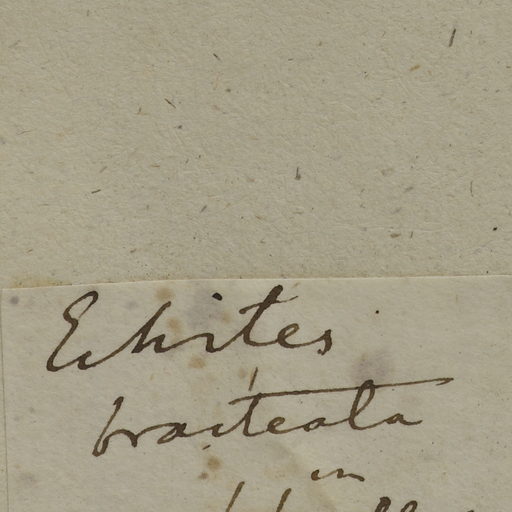 Echites
bracteata
in